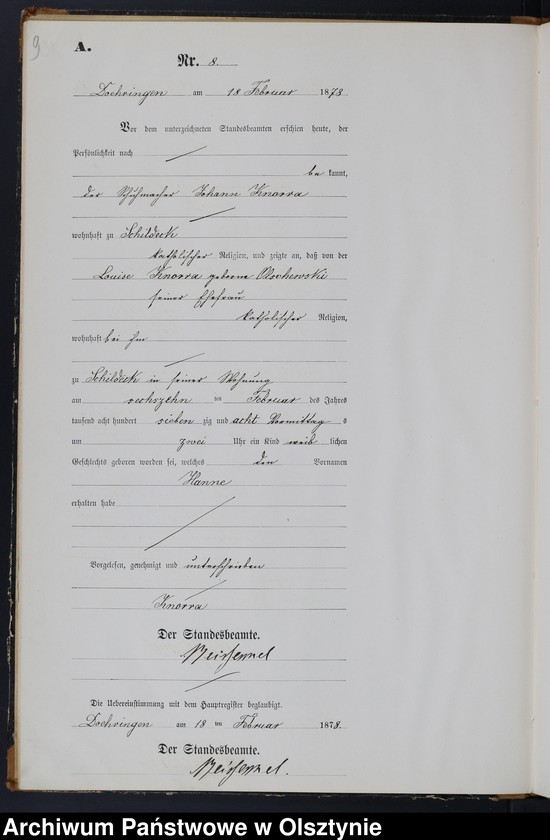 9
A.
Nr. 8.
Doehringen am 18 Februar 1878.
Vor dem unterzeichneten Standesbeamten erschien heute, der
Persönlichkeit nach
bekannt,
der Schuhmacher Johann Knorra
wohnhaft zu Schildeck
katholischer Religion, und zeigte an, daß von der
Louise Knorra geborne
seiner Ehefrau
katholischer Religion,
wohnhaft bei ihm
zu Schildeck in seiner Wohnung
am sechszehn ten Februar des Jahres
tausend acht hundert siebenzig und acht Vormittags
um zwei Uhr ein Kind weiblichen
Geschlechts geboren worden sei, welches den Vornamen
Hanne
erhalten habe
Vorgelesen, genehmigt und unterschrieben
Knorra
Der Standesbeamte.
Die Uebereinstimmung mit dem Hauptregister beglaubigt.
Doehringen am 18 ten Februar 1878.
Der Standesbeamte.
Archiwum Państwowe w Olsztynie